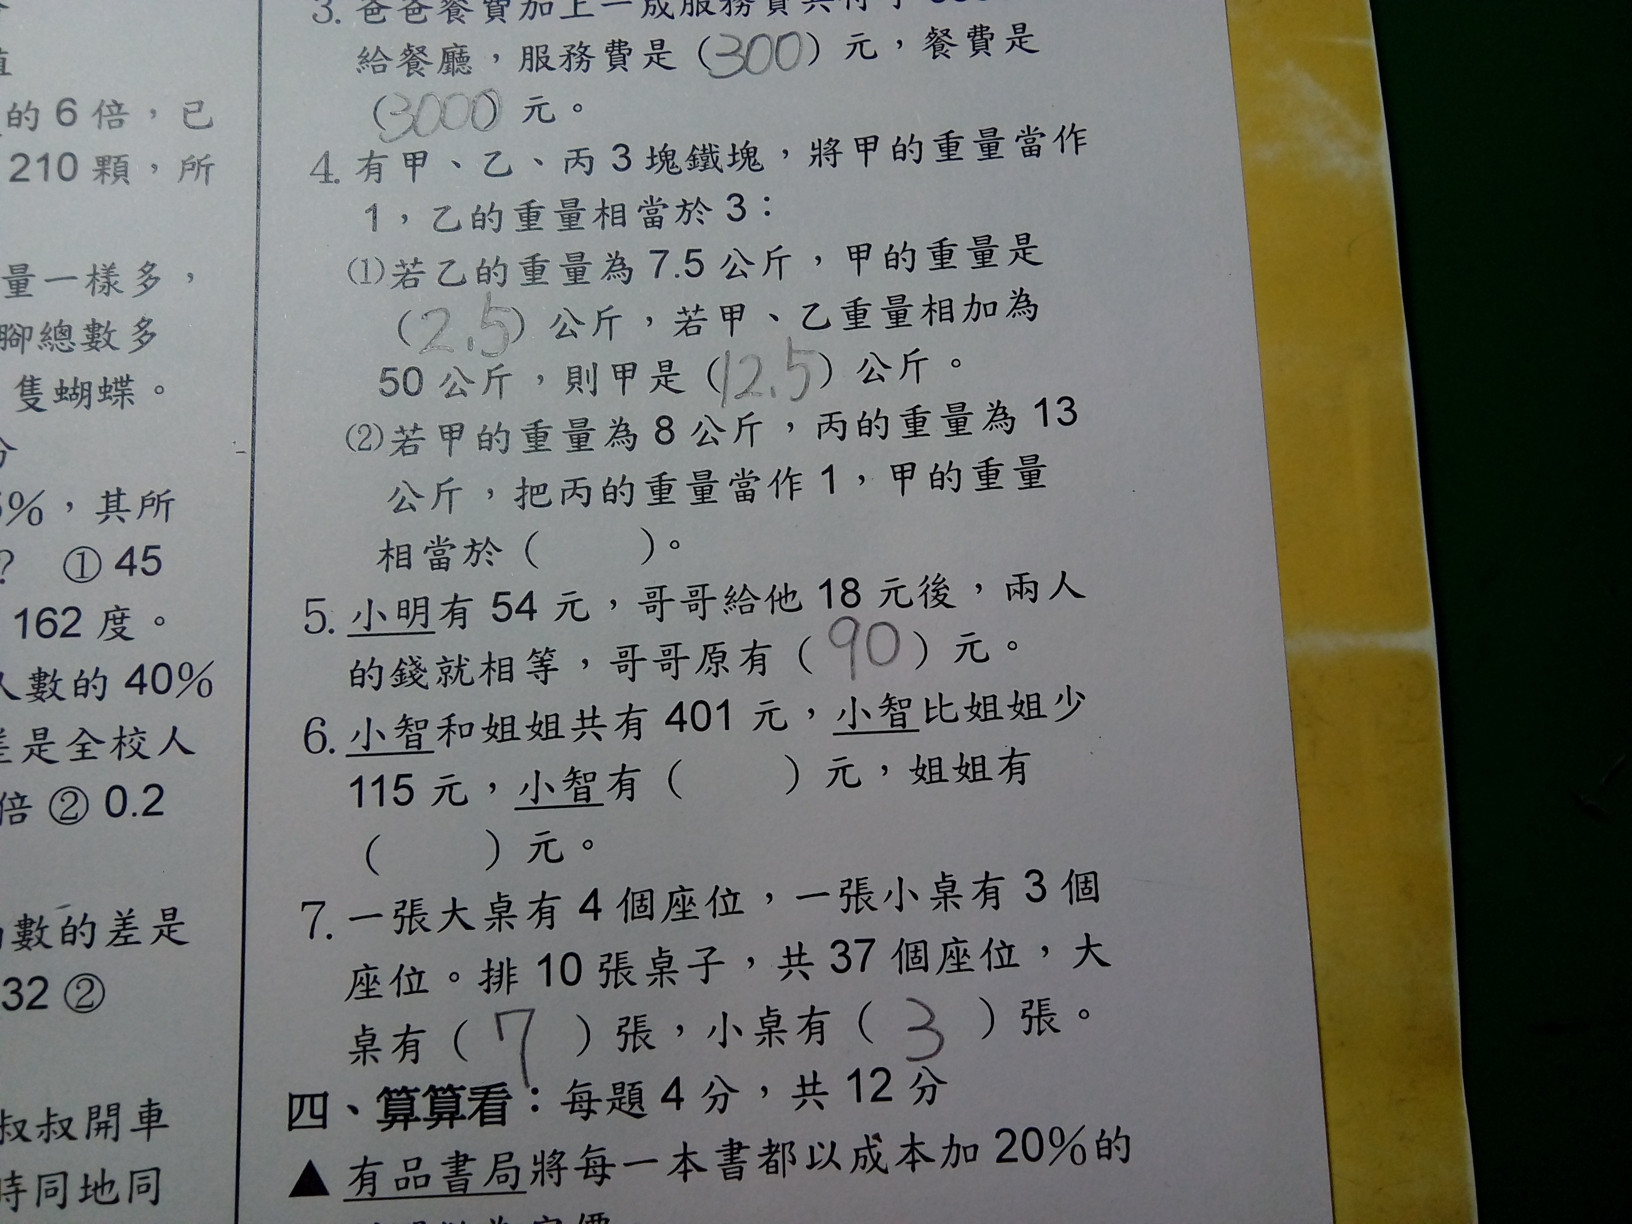 的 6 倍，已
210 顆，所
量一樣多，
腳總數多
隻蝴蝶。
%，其所
？ ① 45
162 度。
人數的 40%
是全校人
倍 ② 0.2
數的差是
32 ②
叔叔開車
時同地同
3. 爸爸餐費加上一成服務費共付了
給餐廳，服務費是（300）元，餐費是
（3000）元。
4. 有甲、乙、丙 3 塊鐵塊，將甲的重量當作
1，乙的重量相當於 3：
⑴若乙的重量為 7.5 公斤，甲的重量是
（2.5）公斤，若甲、乙重量相加為
50 公斤，則甲是（12.5）公斤。
⑵若甲的重量為 8 公斤，丙的重量為 13
公斤，把丙的重量當作 1，甲的重量
相當於（　　）。
5. 小明有 54 元，哥哥給他 18 元後，兩人
的錢就相等，哥哥原有（90）元。
6. 小智和姐姐共有 401 元，小智比姐姐少
115 元，小智有（　　）元，姐姐有
（　　）元。
7. 一張大桌有 4 個座位，一張小桌有 3 個
座位。排 10 張桌子，共 37 個座位，大
桌有（7）張，小桌有（3）張。
四、算算看：每題 4 分，共 12 分
▲ 有品書局將每一本書都以成本加 20%的